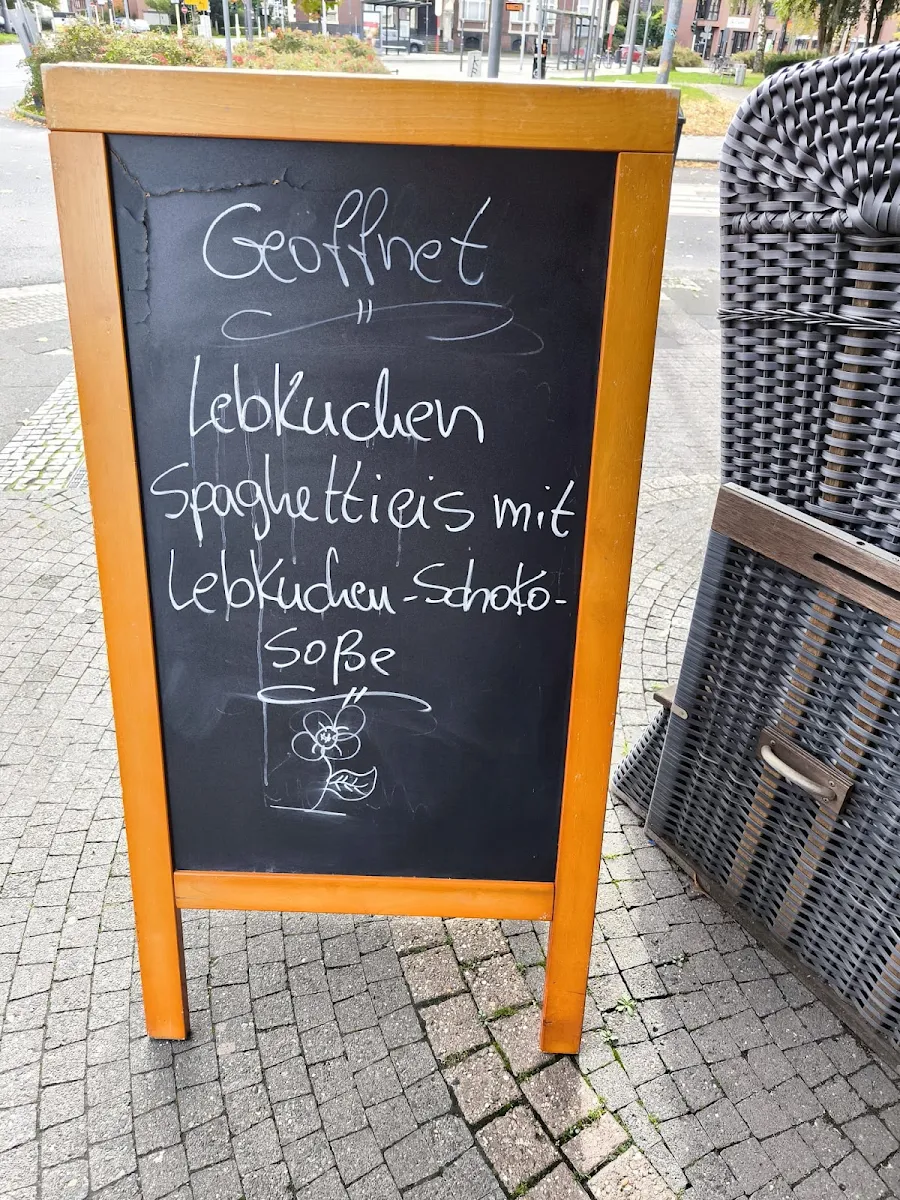 Geoffnet
Lebkuchen
Spaghettieis mit
Lebkuchen-Schoko-
Soße